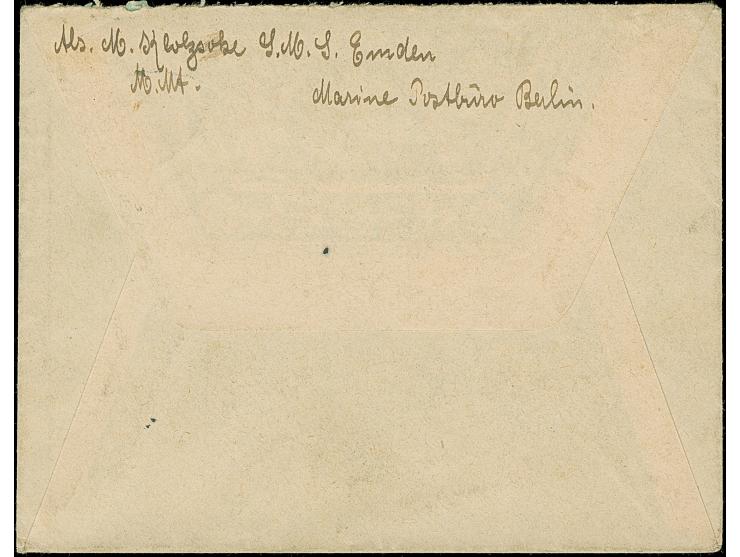 Abs. M. Klotzsche S.M.S. Emden
M. Mt.
Marine Postbüro Berlin.